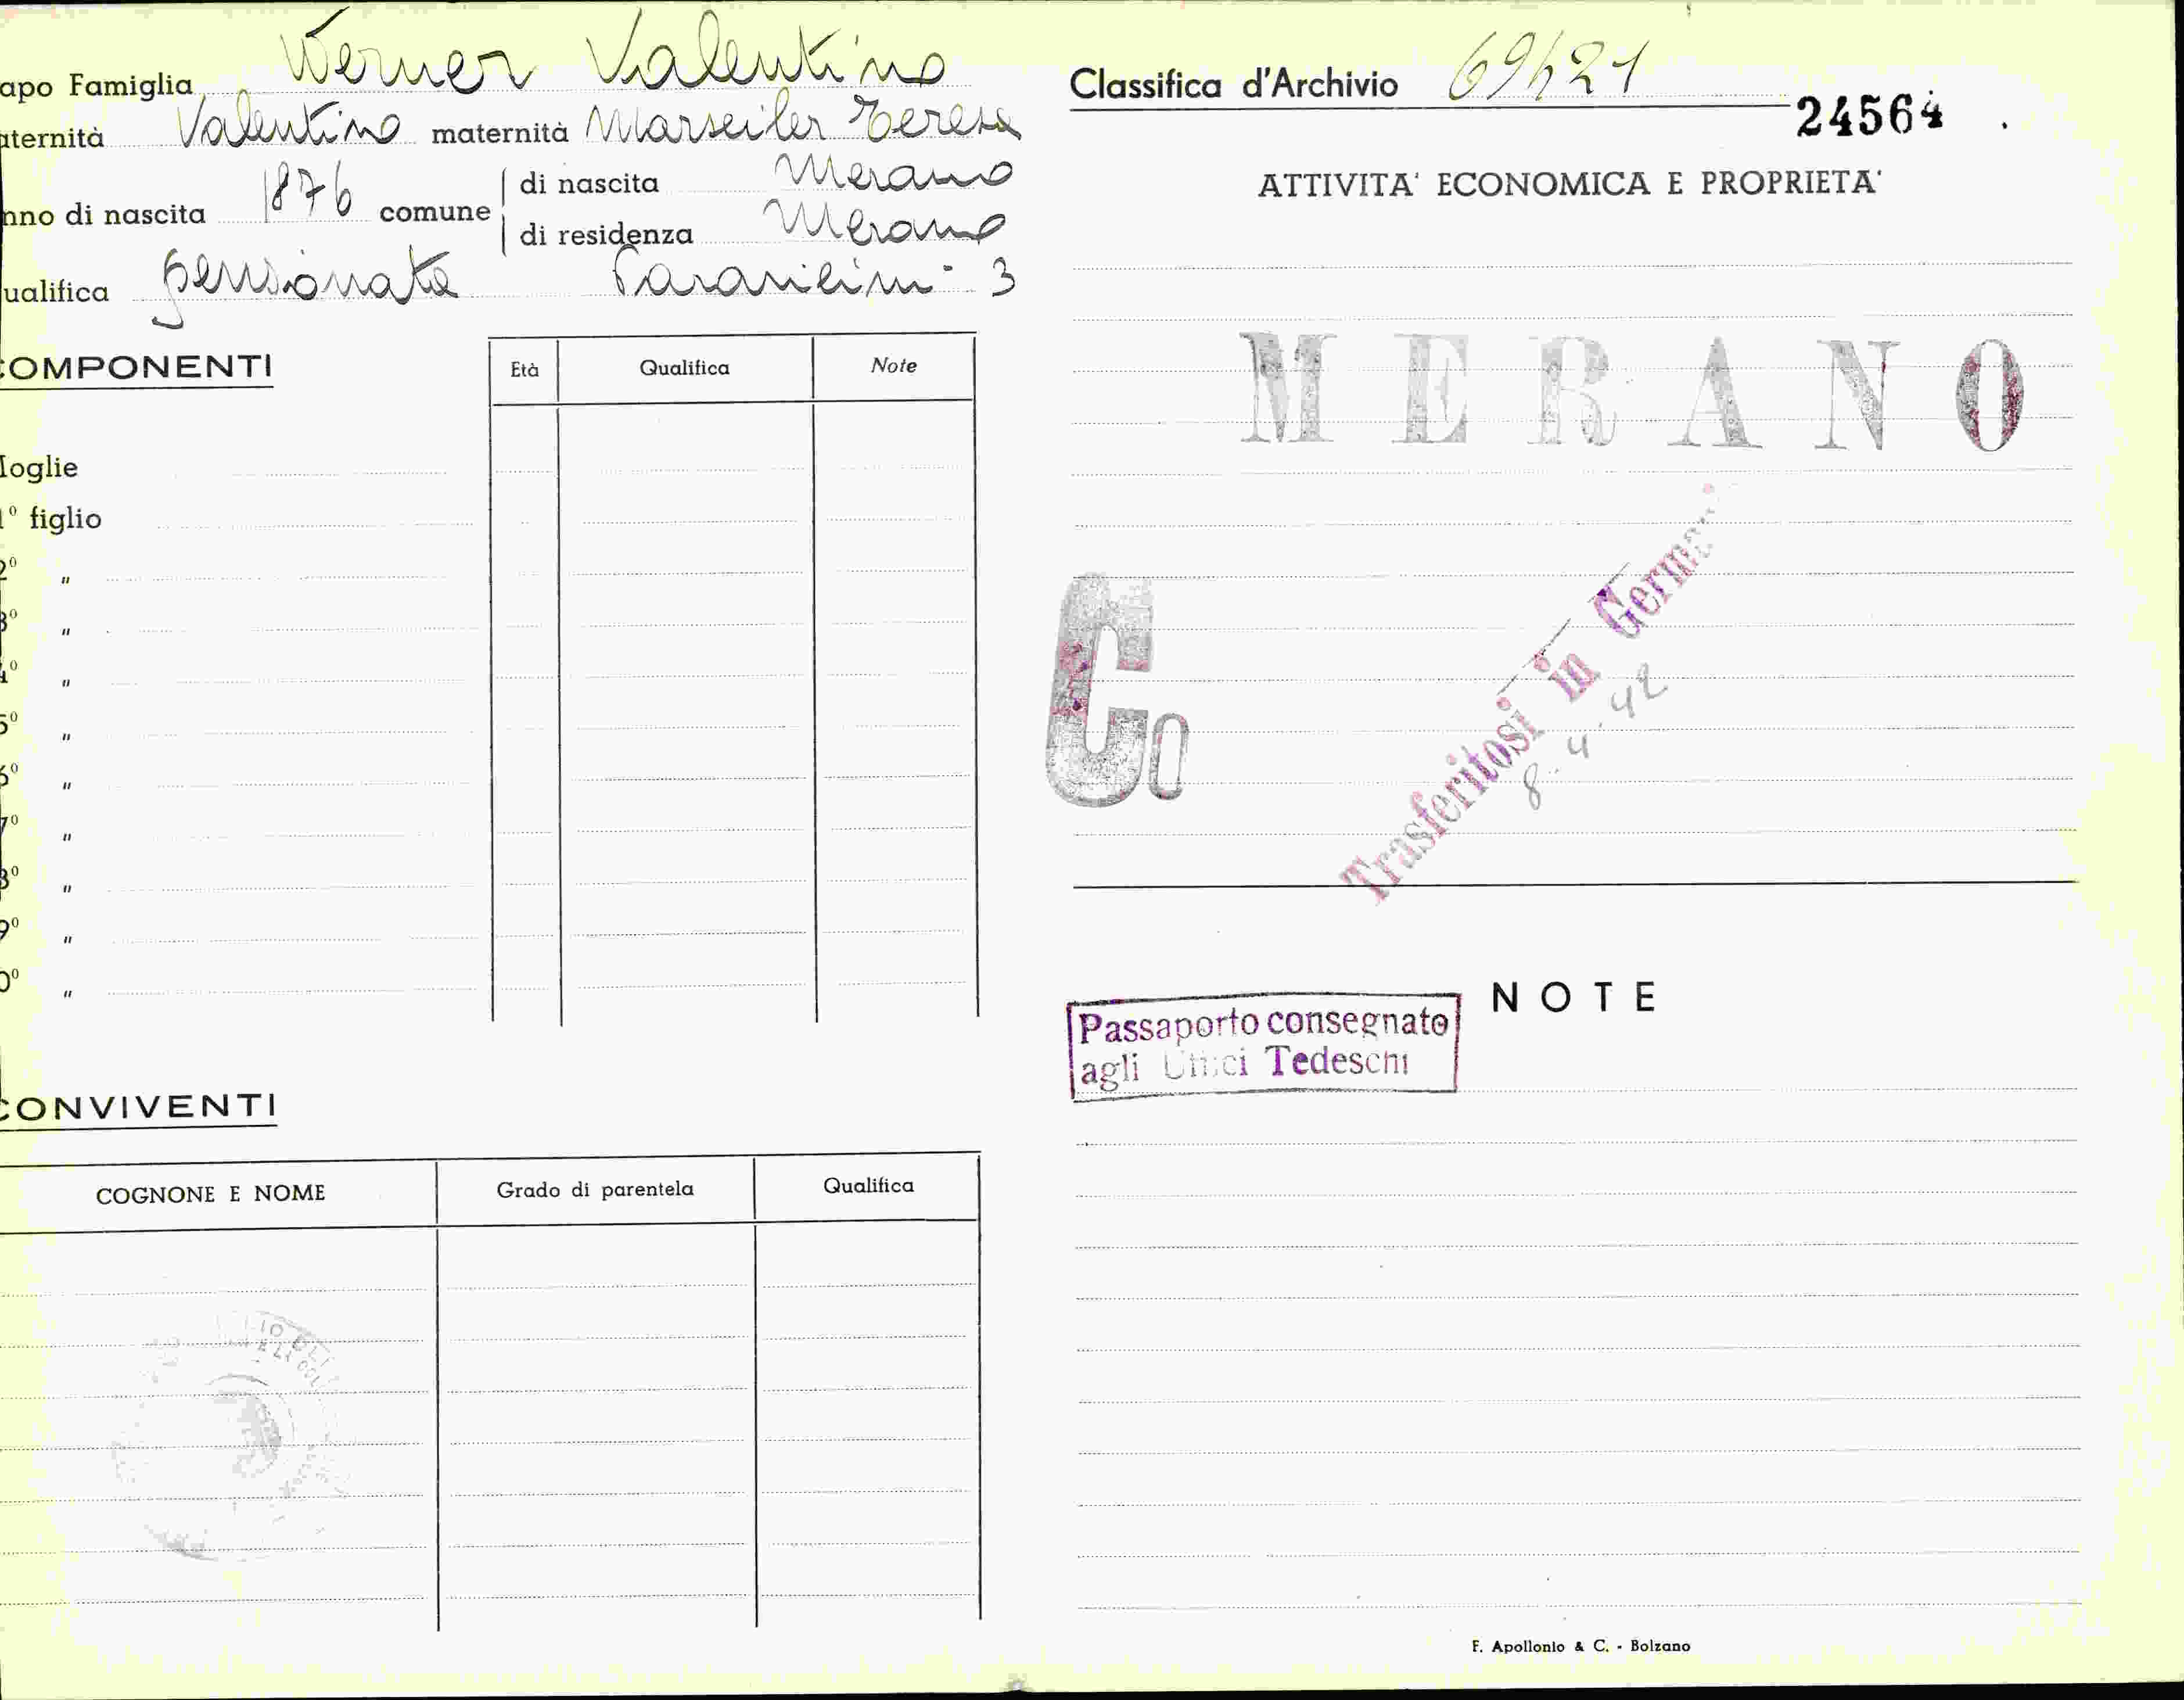 apo Famiglia Werner Valentino
aternità Valentino maternità Marseiler Teresa
nno di nascita 1876 comune di nascita Merano
di residenza Merano
ualifica pensionato 3
COMPONENTI Età Qualifica Note
Moglie
1º figlio
2º "
3º "
4º "
5º "
6º "
7º "
8º "
9º "
0º "
CONVIVENTI
COGNONE E NOME Grado di parentela Qualifica
Classifica d'Archivio
24564
ATTIVITA' ECONOMICA E PROPRIETA'
MERANO
Co
Trasferitosi in
8.4.42
NOTE
Passaporto consegnato
agli Uffici Tedeschi
F. Apollonio & C. - Bolzano